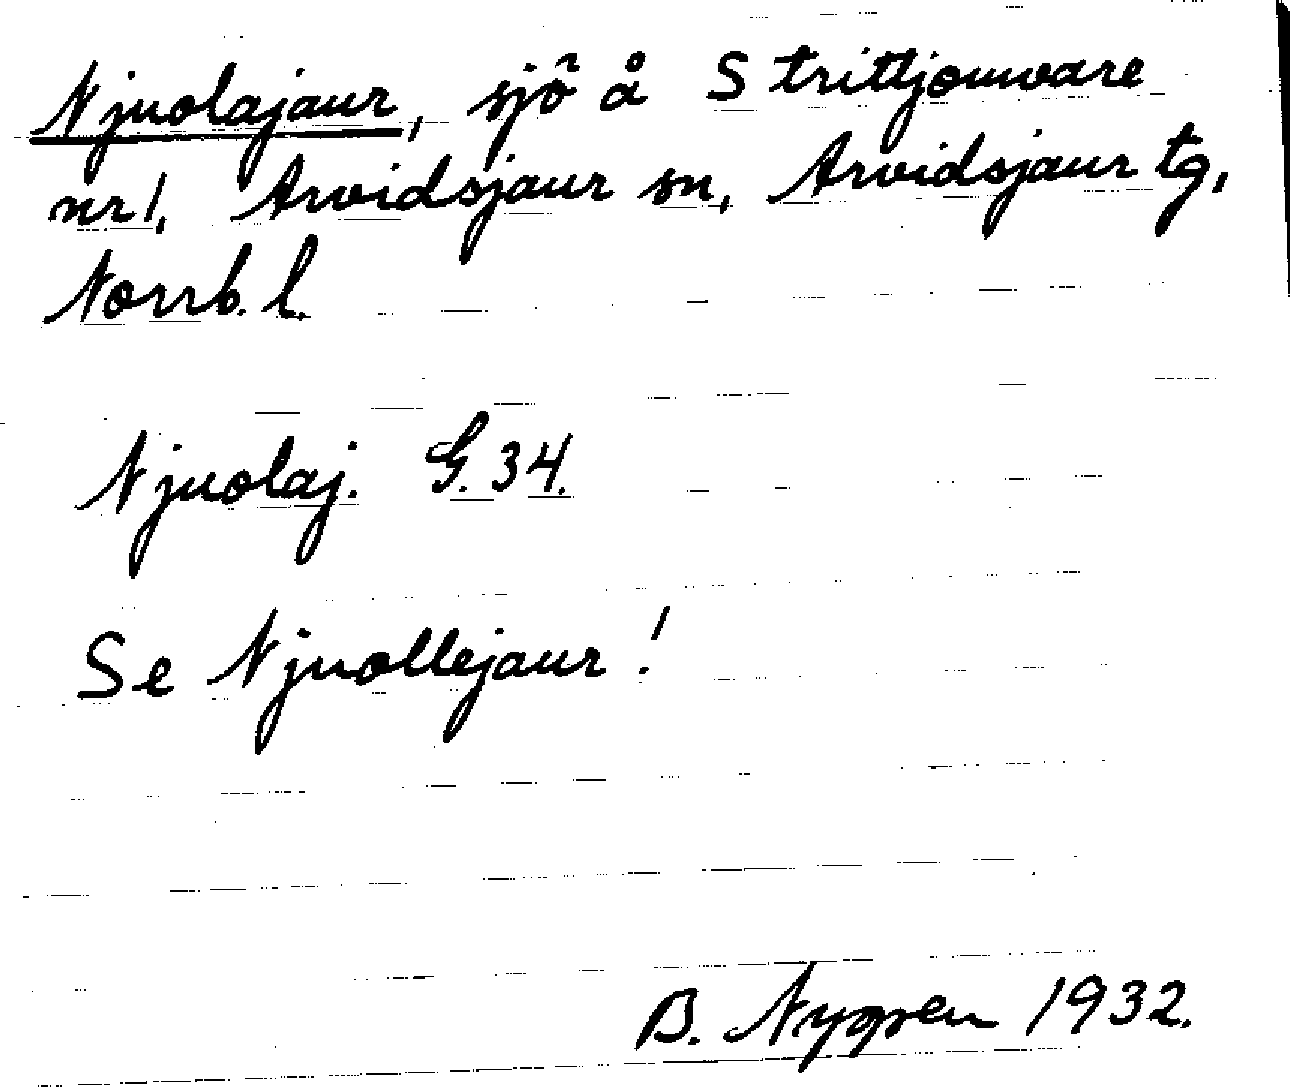 Njuolajaur, sjö å Strittjomware
nr 1, Arvidsjaur sn, Arvidsjaur tg,
Norrb. l.
Njuolaj. G. 34.
Se Njuollejaur!
B. Nygren 1932.